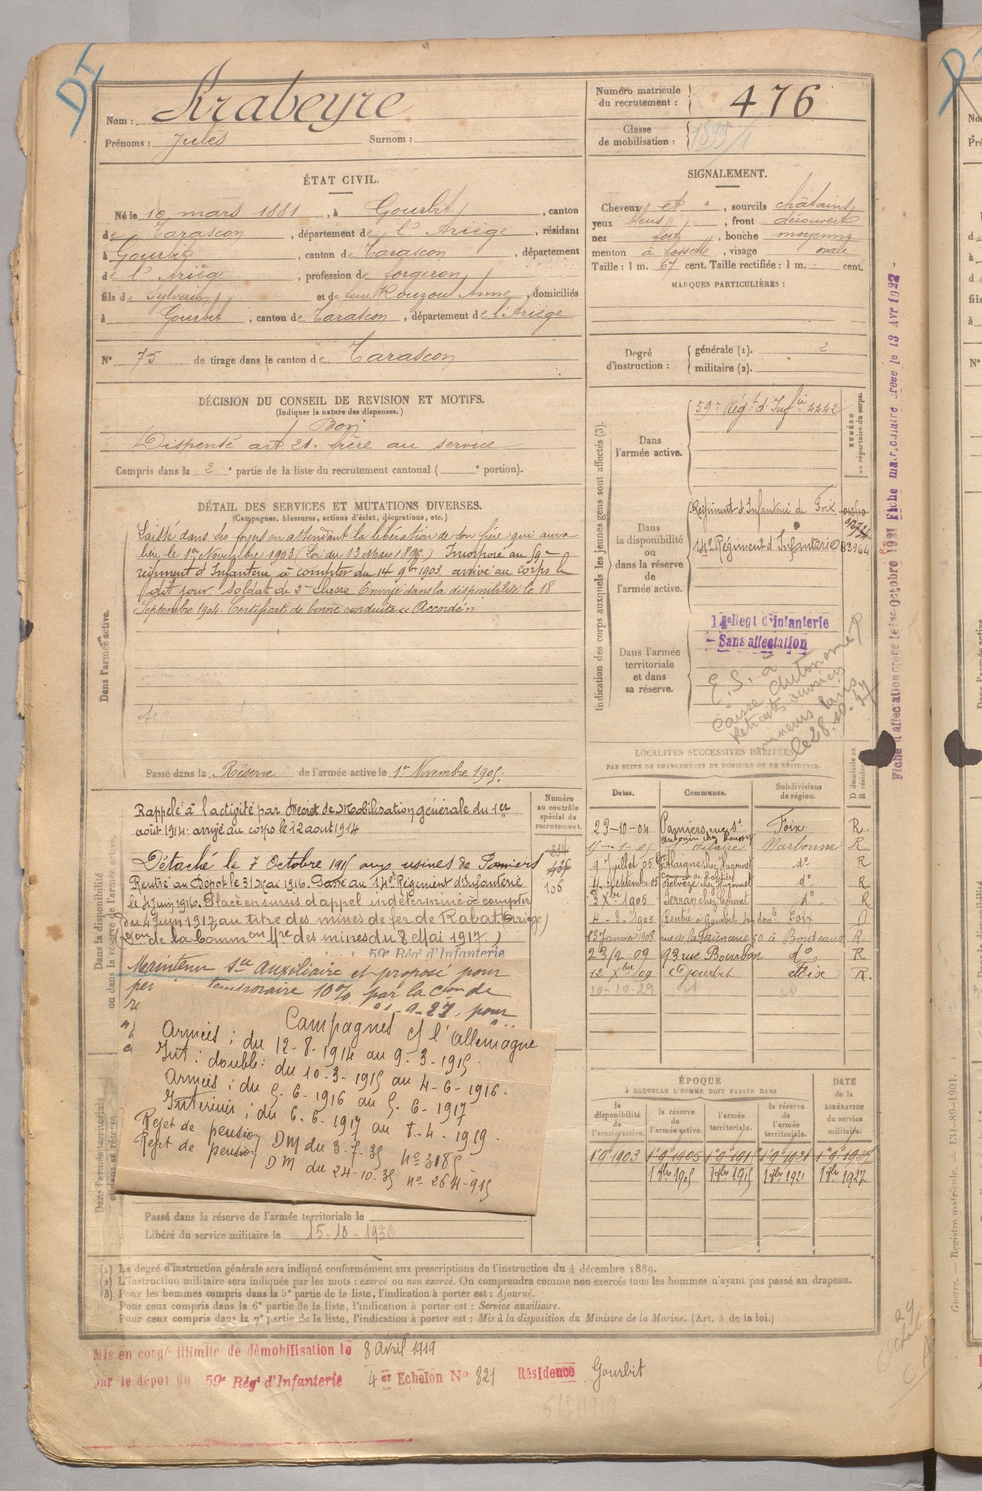 DI
Nom : Krabeyre
Prénoms : Jules Surnom :
Numéro matricule du recrutement : 476
Classe de mobilisation :
ÉTAT CIVIL.
Né le 10 mars 1881, à Gourbit, canton
de Tarascon, département de l'Ariège, résidant
à Gourbit, canton de Tarascon, département
de l'Ariège, profession de forgeron
fils de Sylvain et de feue Rouzou Anne, domiciliés
à Gourbit, canton de Tarascon, département de l'Ariège
N° 75 de tirage dans le canton de Tarascon
SIGNALEMENT.
Cheveux et , sourcils châtains
yeux bleus, front découvert
nez fort, bouche moyenne
menton à fossette, visage ovale
Taille : 1 m. 67 cent. Taille rectifiée : 1 m. cent.
MARQUES PARTICULIÈRES :
Degré d'instruction : générale (1). 2
militaire (2).
DÉCISION DU CONSEIL DE REVISION ET MOTIFS.
(Indiquer la nature des dispenses.)
Bon
Dispensé art 21. frère au service
Compris dans la 2e partie de la liste du recrutement cantonal ( e portion).
DÉTAIL DES SERVICES ET MUTATIONS DIVERSES.
(Campagnes, blessures, actions d'éclat, décorations, etc.)
Dans l'armée active.
Laissé dans ses foyers en attendant la libération de son frère qui aura
lieu le 1er Novembre 1903 (Loi du 13 Mars 1896) Incorporé au 59e
régiment d'Infanterie à compter du 14 9bre 1903 arrivé au corps le
dit jour soldat de 2e classe Envoyé dans la disponibilité le 18
Septembre 1904. Certificat de bonne conduite « Accordé »
Passé dans la Réserve de l'armée active le 1er Novembre 1905.
Indication des corps auxquels les jeunes gens sont affectés (3).
NUMÉRO au répertoire du corps.
Dans l'armée active.
59e Régt d'Infie 4442
Dans la disponibilité ou dans la réserve de l'armée active.
Régiment d'Infanterie de Foix
14e Régiment d'Infanterie
Dans l'armée territoriale et dans sa réserve.
14e Regt d'Infanterie
- Sans affectation
E.S. à
Caisse Autonome
Retraite ouvriers
mineurs Paris
Fiche d'affectation créée le 1er Octobre 1921 Fiche matriculaire créée le 13 Avr 1922 -
Dans la disponibilité ou dans la réserve de l'armée active.
Numéro au contrôle spécial du recrutement.
106
Rappelé à l'activité par Décret de Mobilisation générale du 1er
août 1914; arrivé au corps le 12 août 1914
Détaché le 7 Octobre 1915 aux usines de Pamiers
Rentré au Dépôt le 31 Mai 1916. Passé au 14e Régiment d'Infanterie
le 5 Juin 1916. Placé en sursis d'appel indéterminé à compter
du 4 Juin 1917 au titre des mines de fer de Rabat (Ariège)
(Don de la Common Mre des mines du 8 Mai 1917.)
59e Régt d'Infanterie
Maintenu Sce auxiliaire et proposé pour
temporaire 10% par la Con de
Campagnes ct l'allemagne
Armées : du 12-8-1914 au 9-3-1915.
Int : double : du 10-3-1915 au 4-6-1916.
Armées : du 5-6-1916 au 5-6-1917
Intérieur : du 6-6-1917 au 8-4-1919.
Rejet de pension DM du 3-7-35 n° 3185
Rejet de pension DM du 24-10-35 n° 264-915
Passé dans la réserve de l'armée territoriale le
Libéré du service militaire le 15-10-1930
LOCALITÉS SUCCESSIVES HABITÉES
PAR SUITE DE CHANGEMENTS DE DOMICILE OU DE RÉSIDENCE.
Dates. Communes. Subdivisions de région. D domicile ou R résidence.
23-10-04 Pamiers, rue St Antonin Foix R
St Hilaire Narbonne R
9 Juillet 05 do R
4 Septembre 05 do R
3 Xbre 1905 do R
4-2-1905 Rentré à Gourbit Foix D
13 Janvier 1908 rue de la Faïencerie 50 à Bordeaux R
23/2 09 93 rue Bourbon do R
12 Xbre 09 Gourbit Foix R.
10-10-29
ÉPOQUE
À LAQUELLE L'HOMME DOIT PASSER DANS
la disponibilité de l'armée active. la réserve de l'armée active. l'armée territoriale. la réserve de l'armée territoriale. DATE de la LIBÉRATION DU SERVICE militaire.
1er 9 1903 1er 9 1905 1er 9 1921
1er 9bre 1905 1er 9bre 1915 1er 9bre 1921 1er 9bre 1927
(1) Le degré d'instruction générale sera indiqué conformément aux prescriptions de l'instruction du 4 décembre 1889.
(2) L'instruction militaire sera indiquée par les mots : exercé ou non exercé. On comprendra comme non exercés tous les hommes n'ayant pas passé au drapeau.
(3) Pour les hommes compris dans la 5e partie de la liste, l'indication à porter est : Ajourné.
Pour ceux compris dans la 6e partie de la liste, l'indication à porter est : Service auxiliaire.
Pour ceux compris dans la 7e partie de la liste, l'indication à porter est : Mis à la disposition du Ministre de la Marine. (Art. 4 de la loi.)
Mis en congé illimité de démobilisation le 8 avril 1919
par le dépôt du 59e Régt d'Infanterie 4er Echelon N° 821 Résidence Gourbit